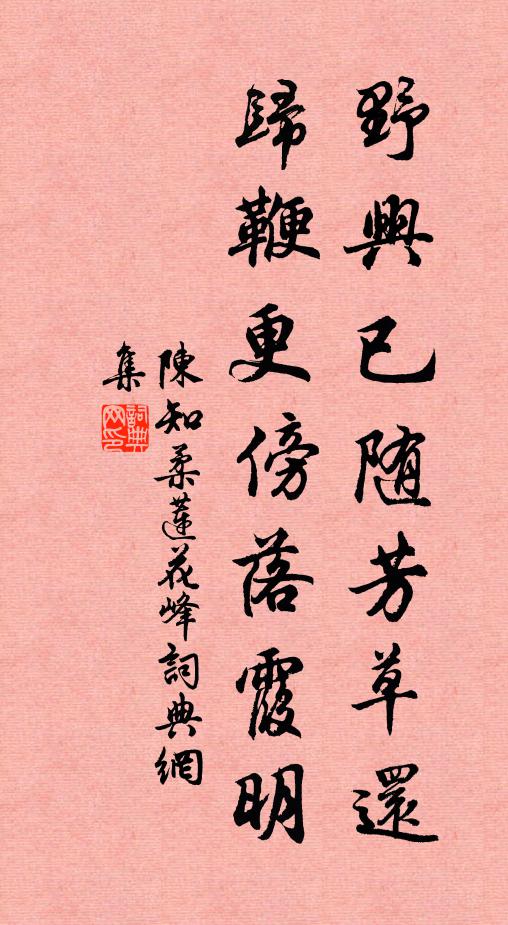 野興已随芳草還
歸鞭更傍落霞明
陳知柔蓮花峰詞典網
集
詞典网印